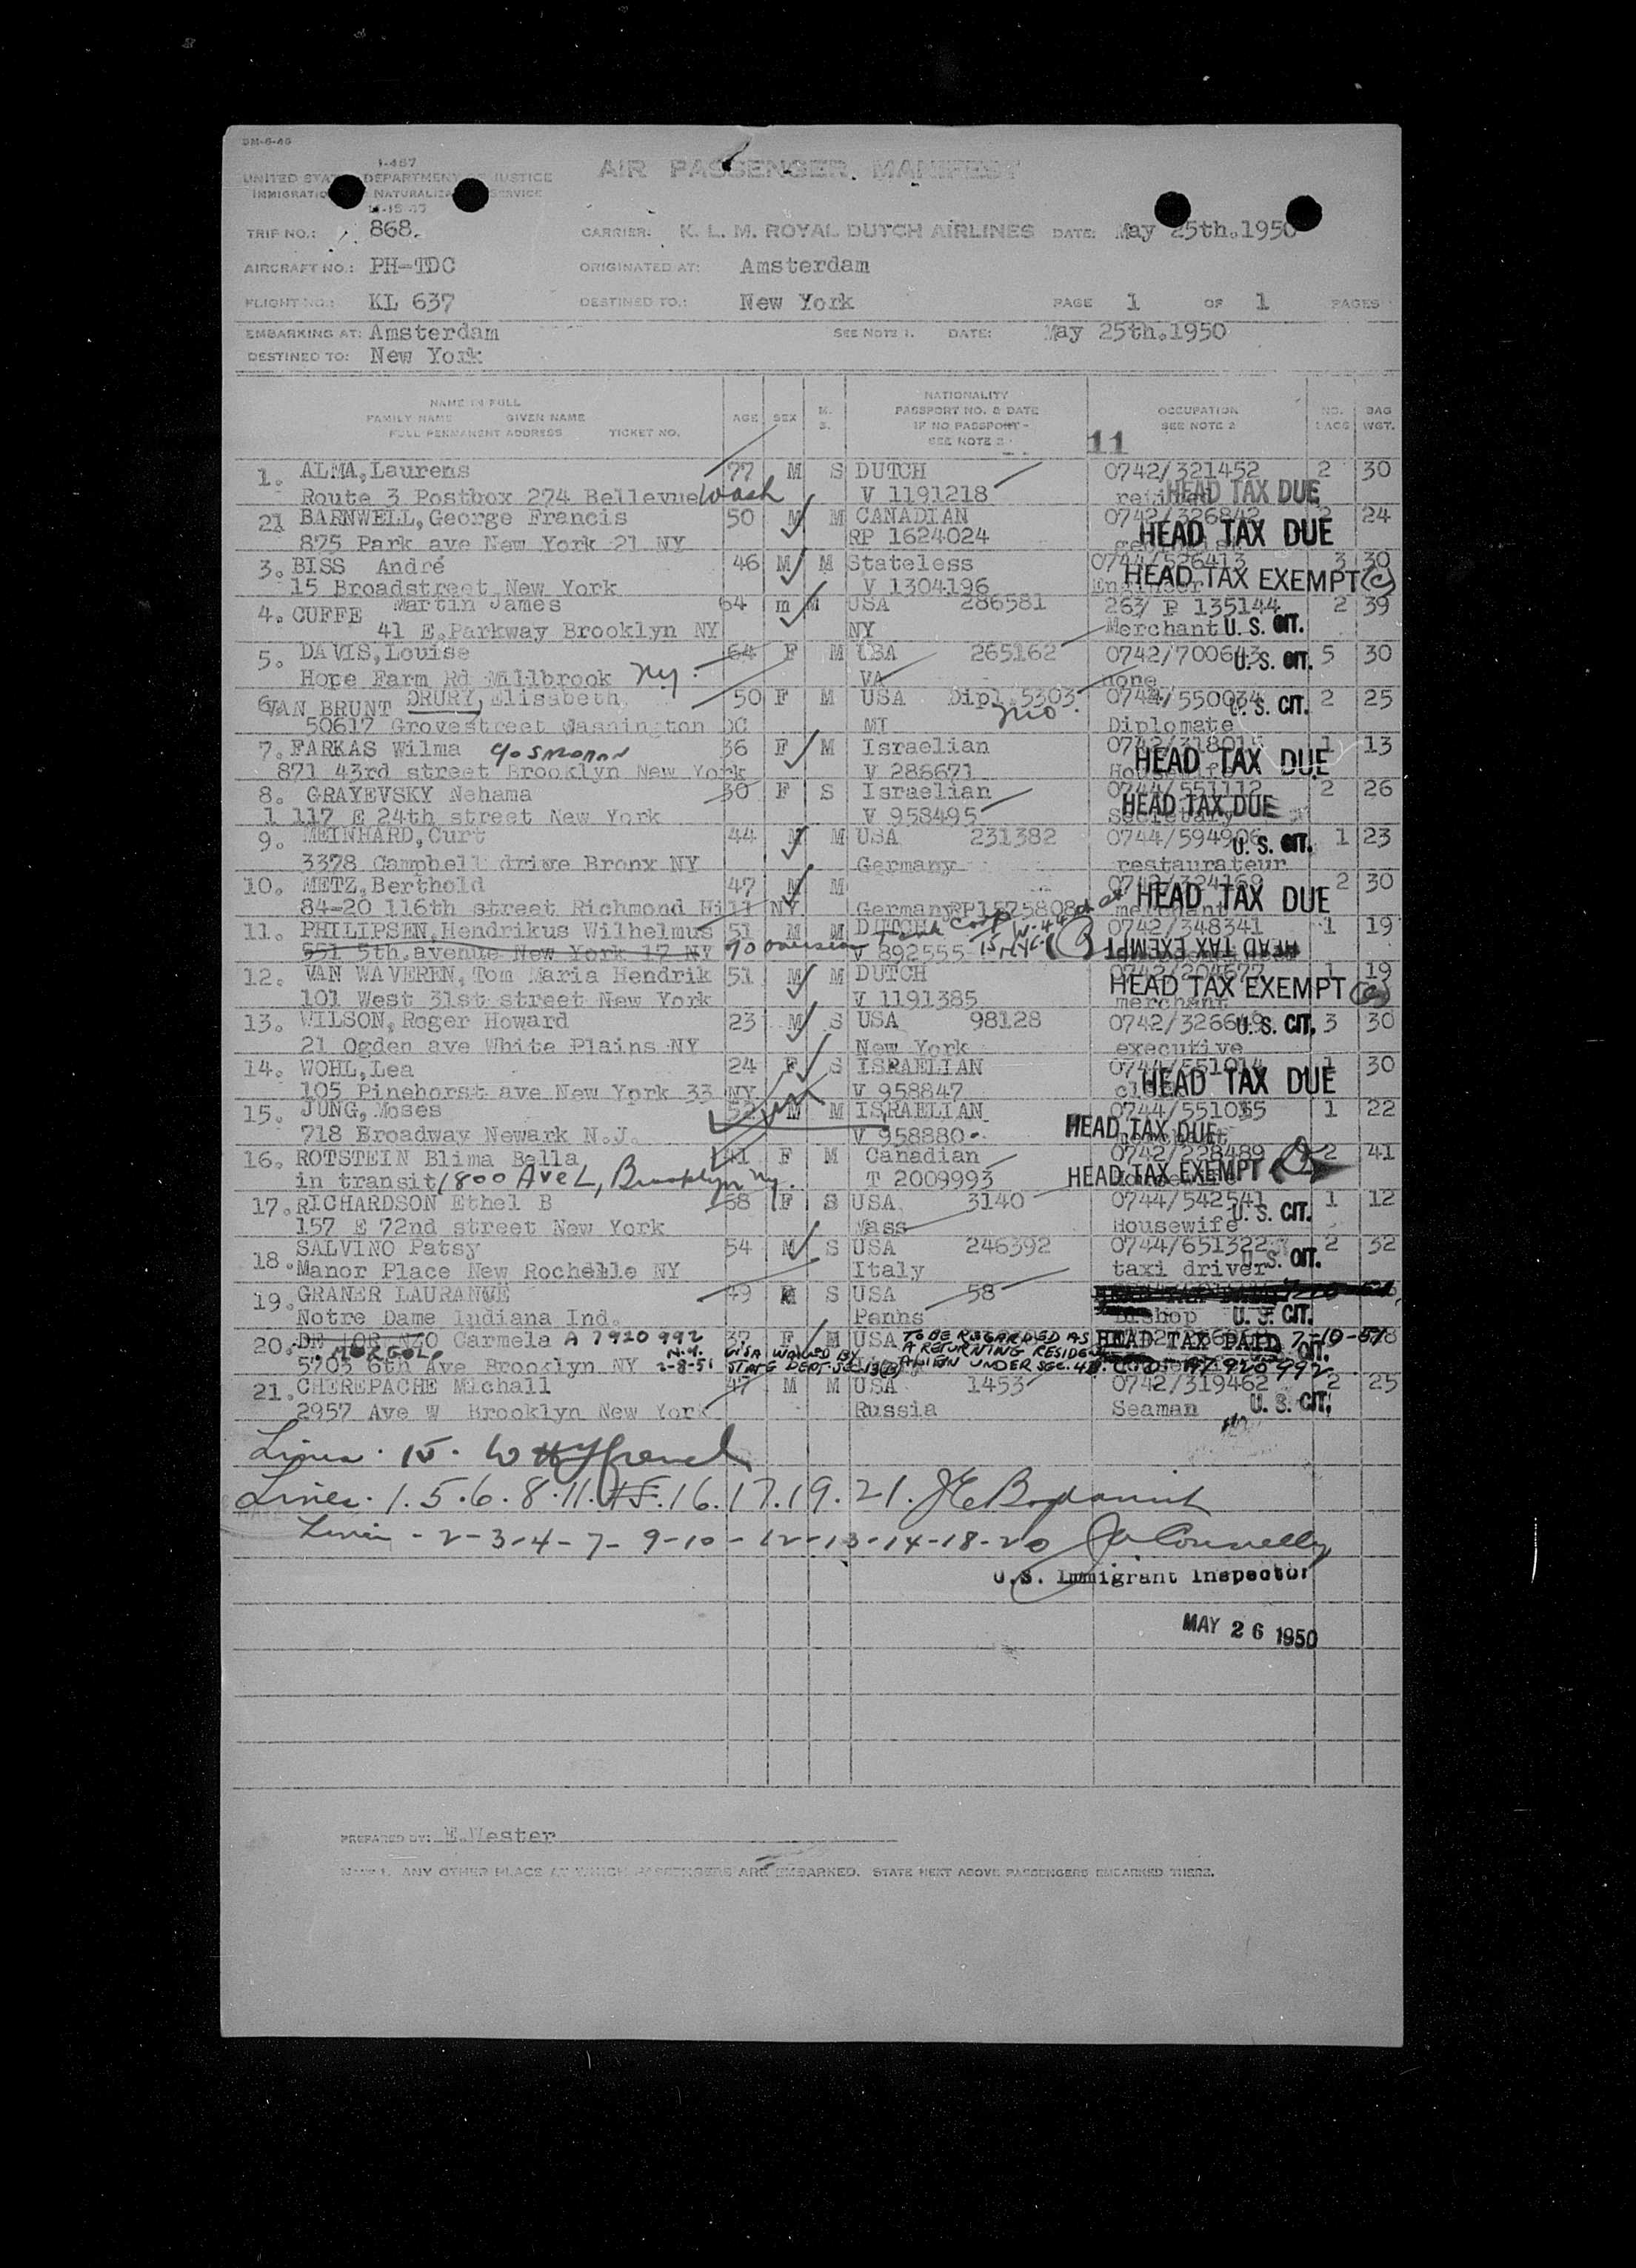 BM-6-46
I-467
UNITED STATES DEPARTMENT JUSTICE
IMMIGRATION NATURALIZATION SERVICE
AIR PASSENGER MANIFEST
TRIP NO.: 868. CARRIER: K. L. M. ROYAL DUTCH AIRLINES DATE: May 25th.1950
AIRCRAFT NO.: PH-TDC ORIGINATED AT: Amsterdam
FLIGHT NO.: KL 637 DESTINED TO.: New York PAGE 1 OF 1 PAGES
EMBARKING AT: Amsterdam SEE NOTE 1. DATE: May 25th.1950
DESTINED TO: New York
NAME IN FULL
FAMILY NAME GIVEN NAME
FULL PERMANENT ADDRESS TICKET NO.
AGE SEX M. S.
NATIONALITY
PASSPORT NO. & DATE
IF NO PASSPORT-
SEE NOTE 2
OCCUPATION
SEE NOTE 2
11
NO. BAGS BAG WGT.
1. ALMA,Laurens 77 M S DUTCH 0742/321452 2 30
Route 3 Postbox 274 Bellevue Wash V 1191218 HEAD TAX DUE
21 BARNWELL,George Francis 50 M M CANADIAN 0742/326842 2 24
875 Park ave New York 21 NY RP 1624024 HEAD TAX DUE
3. BISS André 46 M M Stateless 0744/526413 3 30
15 Broadstreet New York V 1304196 Engineer HEAD TAX EXEMPT (c)
4. CUFFE Martin James 64 m M USA 286581 263/ P 135144 2 39
41 E.Parkway Brooklyn NY NY Merchant U. S. CIT.
5. DAVIS,Louise 64 F M USA 265162 0742/700643 U. S. CIT. 5 30
Hope Farm Rd Millbrook ny. VA none
6. VAN BRUNT DRURY, Elisabeth 50 F M USA Dipl.5303 0744/550034 U. S. CIT. 2 25
50617 Grovestreet Washington DC MI Diplomate
7. FARKAS Wilma 36 F M Israelian 1 13
871 43rd street Brooklyn New York V 286671 HEAD TAX DUE
8. GRAYEVSKY Nehama 30 F S Israelian 0744/551112 2 26
1 117 E 24th street New York V 958495 Secretary HEAD TAX DUE
9. MEINHARD,Curt 44 M M USA 231382 0744/594906 U. S. CIT. 1 23
3378 Campbell drive Bronx NY Germany restaurateur
10. METZ,Berthold 47 M M 0742/324169 2 30
84-20 116th street Richmond Hill NY Germany RP1575808 merchant HEAD TAX DUE
11. PHILIPSEN,Hendrikus Wilhelmus 51 M M DUTCH 0742/348341 1 19
551 5th.avenue New York 17 NY V 892555 HEAD TAX EXEMPT
12. VAN WAVEREN,Tom Maria Hendrik 51 M M DUTCH 0742/204677 1 19
101 West 31st street New York V 1191385 merchant HEAD TAX EXEMPT (c)
13. WILSON,Roger Howard 23 M S USA 98128 0742/326649 U. S. CIT. 3 30
21 Ogden ave White Plains NY New York executive
14. WOHL,Lea 24 F S ISRAELIAN 0744/551014 1 30
105 Pinehorst ave New York 33 NY V 958847 HEAD TAX DUE
15. JUNG,Moses 52 M M ISRAELIAN 0744/551015 1 22
718 Broadway Newark N.J. V 958880 HEAD TAX DUE
16. ROTSTEIN Blima Bella 41 F M Canadian 0742/228489 2 41
in transit 1800 Ave L, Brooklyn ny. T 2009993 HEAD TAX EXEMPT
17. RICHARDSON Ethel B 58 F S USA 3140 0744/542541 1 12
157 E 72nd street New York Mass Housewife U. S. CIT.
18. SALVINO Patsy 54 M S USA 246392 0744/651322 2 32
Manor Place New Rochelle NY Italy taxi driver U. S. CIT.
19. GRANER LAURANCE 49 M S USA 58
Notre Dame Indiana Ind. Penns Bishop U. S. CIT.
20. Carmela A 7920 992 37 F M USA TO BE REGARDED AS HEAD TAX PAID 7-10-51
MERGOLO N.Y. VISA WAIVED BY A RETURNING RESIDENT
5703 6th Ave Brooklyn NY 2-8-51 STATE DEPT. ALIEN UNDER SEC. A7 920 992
21. CHEREPACHE Michall 47 M M USA 1453 0742/319462 2 25
2957 Ave W Brooklyn New York Russia Seaman U. S. CIT.
Lines. 15.
Lines. 1.5.6.8.11.15.16.17.19.21.
Lines - 2-3-4-7-9-10-12-13-14-18-20 Connelly
U.S. Immigrant Inspector
MAY 26 1950
PREPARED BY: E.Wester
NOTE 1. ANY OTHER PLACE AT WHICH PASSENGERS ARE EMBARKED. STATE NEXT ABOVE PASSENGERS EMBARKED THERE.